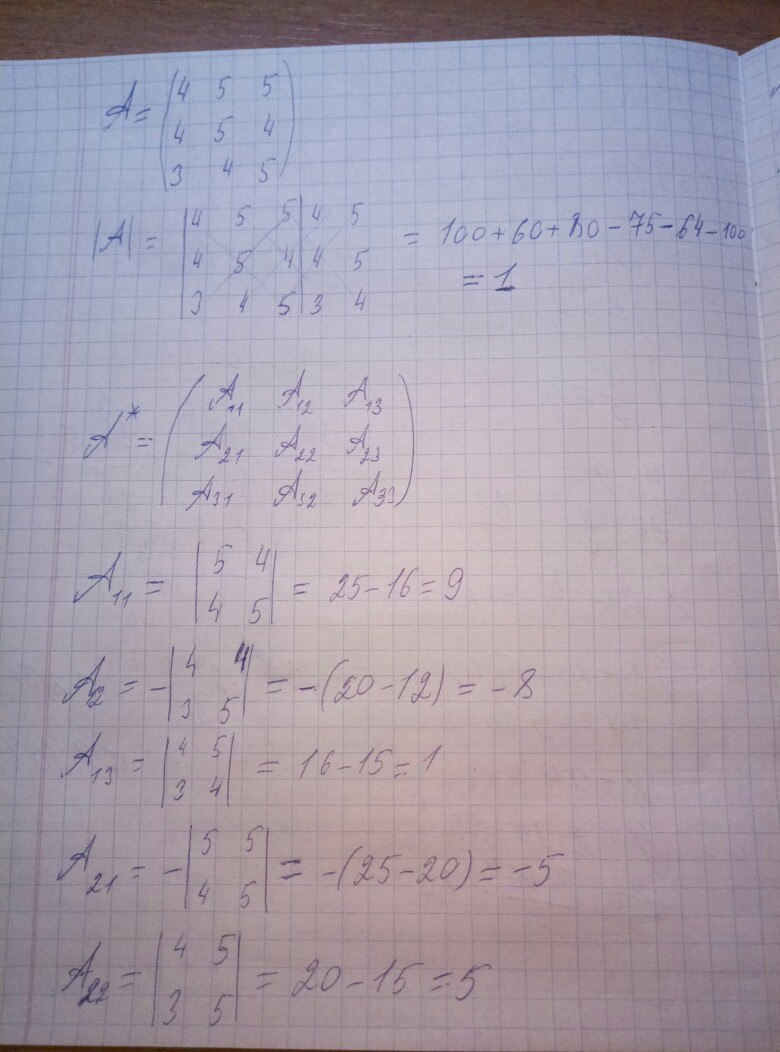 A = (4 5 5
4 5 4
3 4 5)
|A| = |4 5 5| 4 5 = 100+60+80-75-64-100
4 5 4| 4 5 = 1
3 4 5| 3 4
A* = (A11 A12 A13
A21 A22 A23
A31 A32 A33)
A11 = |5 4
4 5| = 25-16=9
A12 = -|4 4
3 5| = -(20-12) = -8
A13 = |4 5
3 4| = 16-15=1
A21 = -|5 5
4 5| = -(25-20) = -5
A22 = |4 5
3 5| = 20-15=5